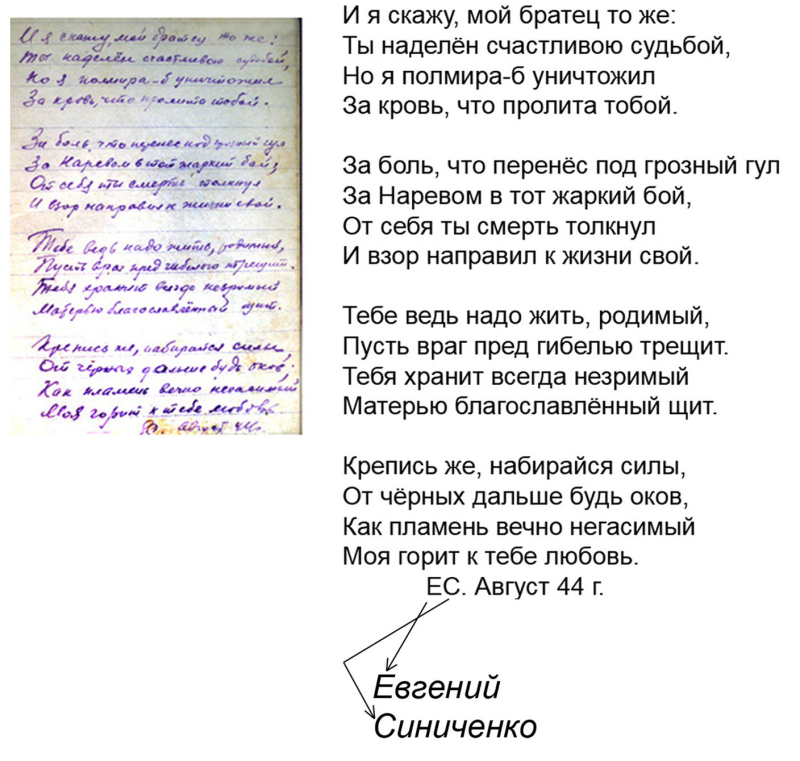 И я скажу, мой братец то же:
Ты наделён счастливою судьбой,
Но я полмира-б уничтожил
За кровь, что пролита тобой.
За боль, что перенёс под грозный гул
За Наревом в тот жаркий бой,
От себя ты смерть толкнул
И взор направил к жизни свой.
Тебе ведь надо жить, родимый,
Пусть враг пред гибелью трещит.
Тебя хранит всегда незримый
Матерью благославлённый щит.
Крепись же, набирайся силы,
От чёрных дальше будь оков,
Как пламень вечно негасимый
Моя горит к тебе любовь.
август 44г.
И я скажу, мой братец то же:
Ты наделён счастливою судьбой,
Но я полмира-б уничтожил
За кровь, что пролита тобой.
За боль, что перенёс под грозный гул
За Наревом в тот жаркий бой,
От себя ты смерть толкнул
И взор направил к жизни свой.
Тебе ведь надо жить, родимый,
Пусть враг пред гибелью трещит.
Тебя хранит всегда незримый
Матерью благославлённый щит.
Крепись же, набирайся силы,
От чёрных дальше будь оков,
Как пламень вечно негасимый
Моя горит к тебе любовь.
ЕС. Август 44 г.
Евгений
Синиченко